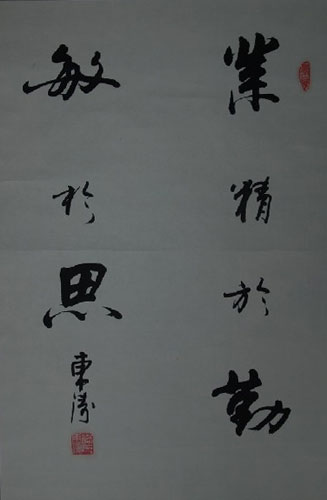 業精於勤
敏於思
東濤